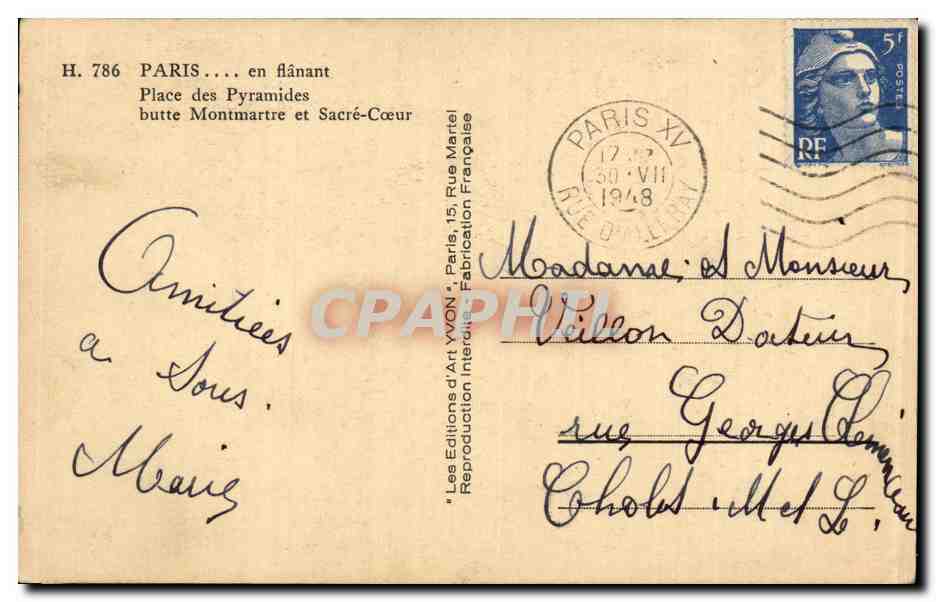 H. 786 PARIS.... en flânant
Place des Pyramides
butte Montmartre et Sacré-Cœur
Amitiées
a Tous.
Marie
"Les Editions d'Art YVON", Paris, 15, Rue Martel
Reproduction Interdite - Fabrication Française
PARIS XV
30 VII
1948
RUE D'ALLERAY
5F
POSTES
RF
Madame et Monsieur
Veillon Docteur
rue Georges Clémenceau
Cholet. M et L.
CPAPHIL